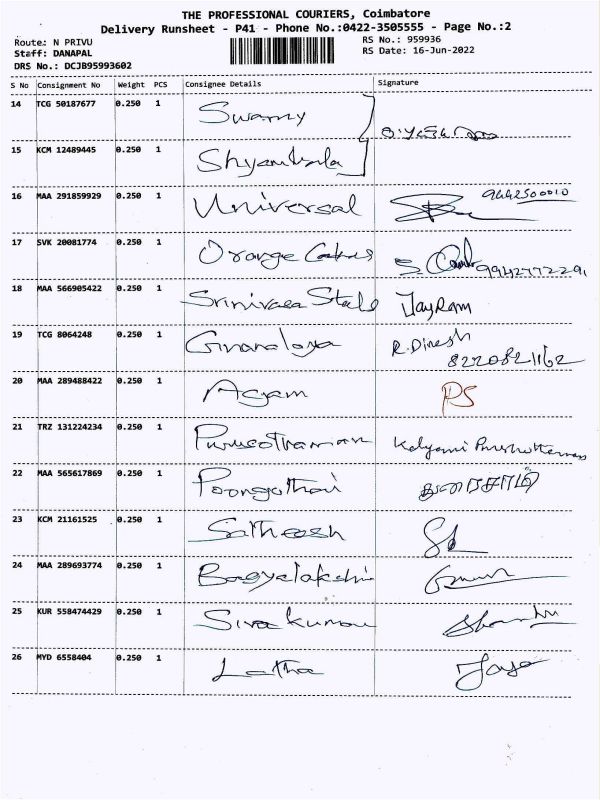 THE PROFESSIONAL COURIERS, Coimbatore
Delivery Runsheet - P41 - Phone No.:0422-3505555 - Page No.:2
Route: N PRIVU RS No.: 959936
Staff: DANAPAL RS Date: 16-Jun-2022
DRS No.: DCJB95993602
S No Consignment No Weight PCS Consignee Details Signature
14 TCG 50187677 0.250 1 Swamy
15 KCM 12489445 0.250 1
16 MAA 291859929 0.250 1 Universal 9442500010
17 SVK 20081774 0.250 1 Orange Cakes 9942772291
18 MAA 566905422 0.250 1 Srinivasa Stall JayRam
19 TCG 8064248 0.250 1 Gnanalaya R. Dinesh
8220821162
20 MAA 289488422 0.250 1 Agam PS
21 TRZ 131224234 0.250 1 Purusothaman Kalyani Purushothaman
22 MAA 565617869 0.250 1 Poongothai
23 KCM 21161525 0.250 1 Satheesh
24 MAA 289693774 0.250 1 Bagyalakshmi
25 KUR 558474429 0.250 1 Sivakumar
26 MYD 6558404 0.250 1 Latha Jaya